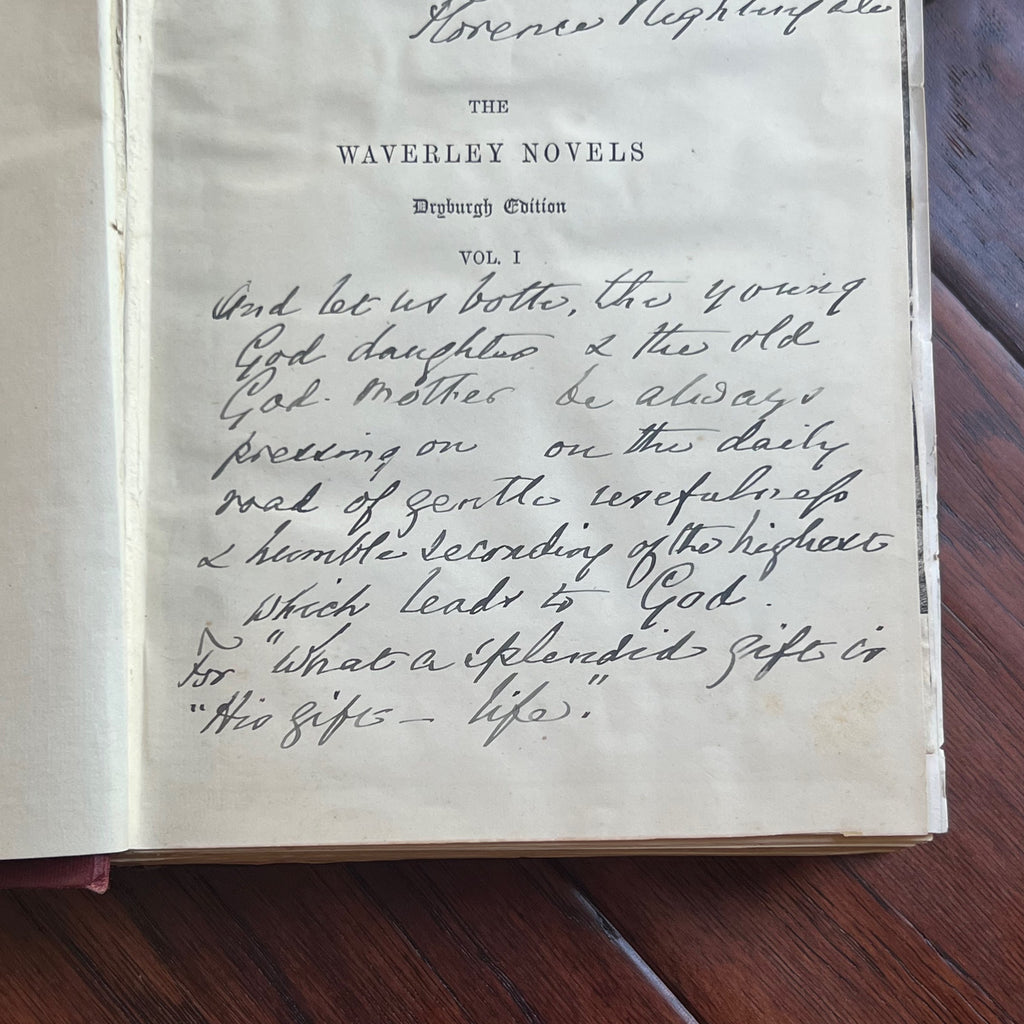 Florence Nightingale
THE
WAVERLEY NOVELS
Dryburgh Edition
VOL. I
And let us both, the young
God daughter & the old
God-Mother be always
pressing on on the daily
road of gentle usefulness
& humble seconding of the highest
which leads to God.
For "What a splendid gift is
"His gift — life."